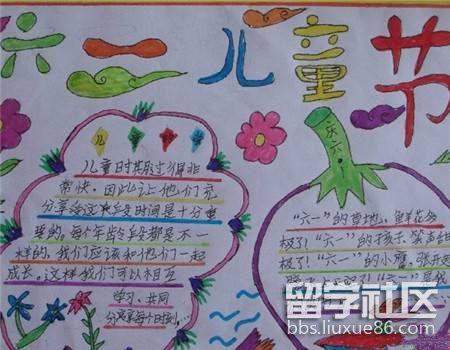 六一儿童节
儿童时期过得非
常快,因此让他们充
分享受这段时间是十分重
要的,每个年龄段都是不一
样的,我们应该和他们一起
成长,这样我们可以相互
学习、共同
分享每个时刻……
庆六一
"六一"的草地,鲜花多
极了!"六一"的孩子,笑声甜
极了!"六一"的小鹰,张开
留学社区
bbs.liuxue86.com